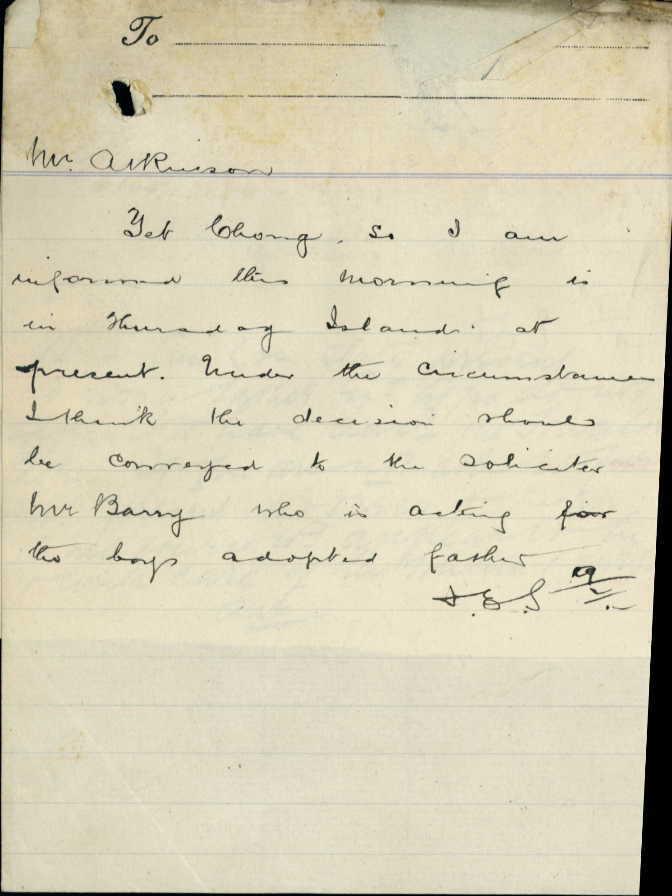 To
Mr. Atkinson
Yet Chong, so I am
informed this morning is
in Thursday Island at
present. Under the circumstances
I think the decision should
be conveyed to the solicitor
Mr Barry who is acting for
the boys adopted father